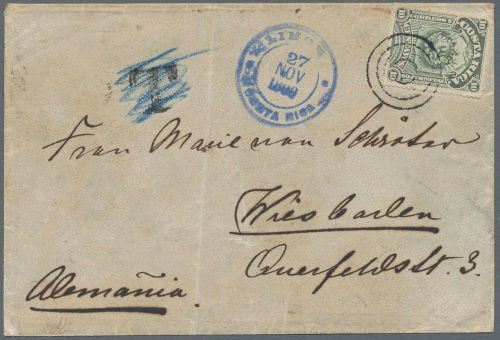 LIMON
27
NOV
COSTA RICA
T
10
CORREOS
10
COSTA RICA
10
10
Frau Marie von Schröter
Wiesbaden
Querfeldstr. 3.
Alemañia.